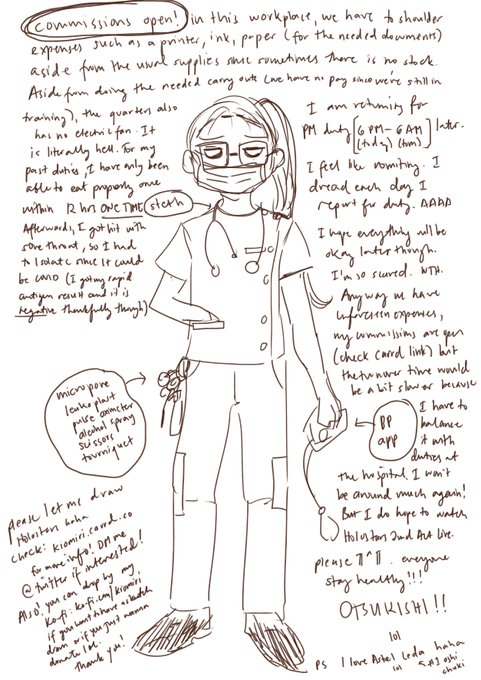 commissions open! in this workplace, we have to shoulder
expenses such as a printer, ink, paper (for the needed documents)
aside from the usual supplies since sometimes there is no stock.
Aside from doing the needed carry outs (we have no pay since we're still in
training), the quarters also
has no electric fan. It
is literally hell. For my
past duties, I have only been
able to eat properly once
within 12 hrs ONE TIME
Afterwards, I got hit with
sore throat, so I had
to isolate since it could
be COVID (I got my rapid
antigen result and it is
negative thankfully though)
steth
I am returning for
PM duty [6 PM - 6 AM] later.
(today) (tom)
I feel like vomiting. I
dread each day I
report for duty. AAAA
I hope everything will be
okay later though.
I'm so scared. WTH.
Anyway we have
unforeseen expenses,
my commissions are open
(check carrd link) but
the turnover time would
be a bit slower because
I have to
balance
it with
duties at
the hospital. I won't
be around much again!
But I do hope to watch
Holostars 2nd Act Live.
please everyone
stay healthy!!!
OTSUKISHI!!
lol
PS I love Astel Leda haha
lol #1 oshi
micropore
leukoplast
pulse oximeter
alcohol spray
scissors
tourniquet
BP
app
please let me draw
Holostars haha
check: kiomiri.carrd.co
for more info! DM me
@ twitter if interested!
Also! you can drop by my
Ko-fi: ko-fi.com/kiomiri
if you want to have a sketch
drawn or if you just wanna
donate lol.
Thank you!